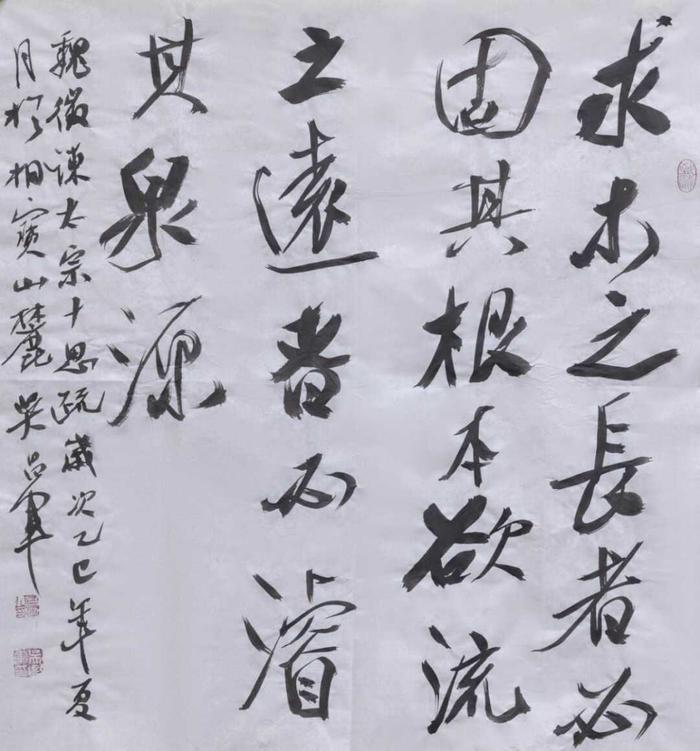 求木之長者必
固其根本欲流
之遠者必濬
其泉源
魏徵諫太宗十思疏歲次乙巳年夏
月於桐寶山麓吳昌軍